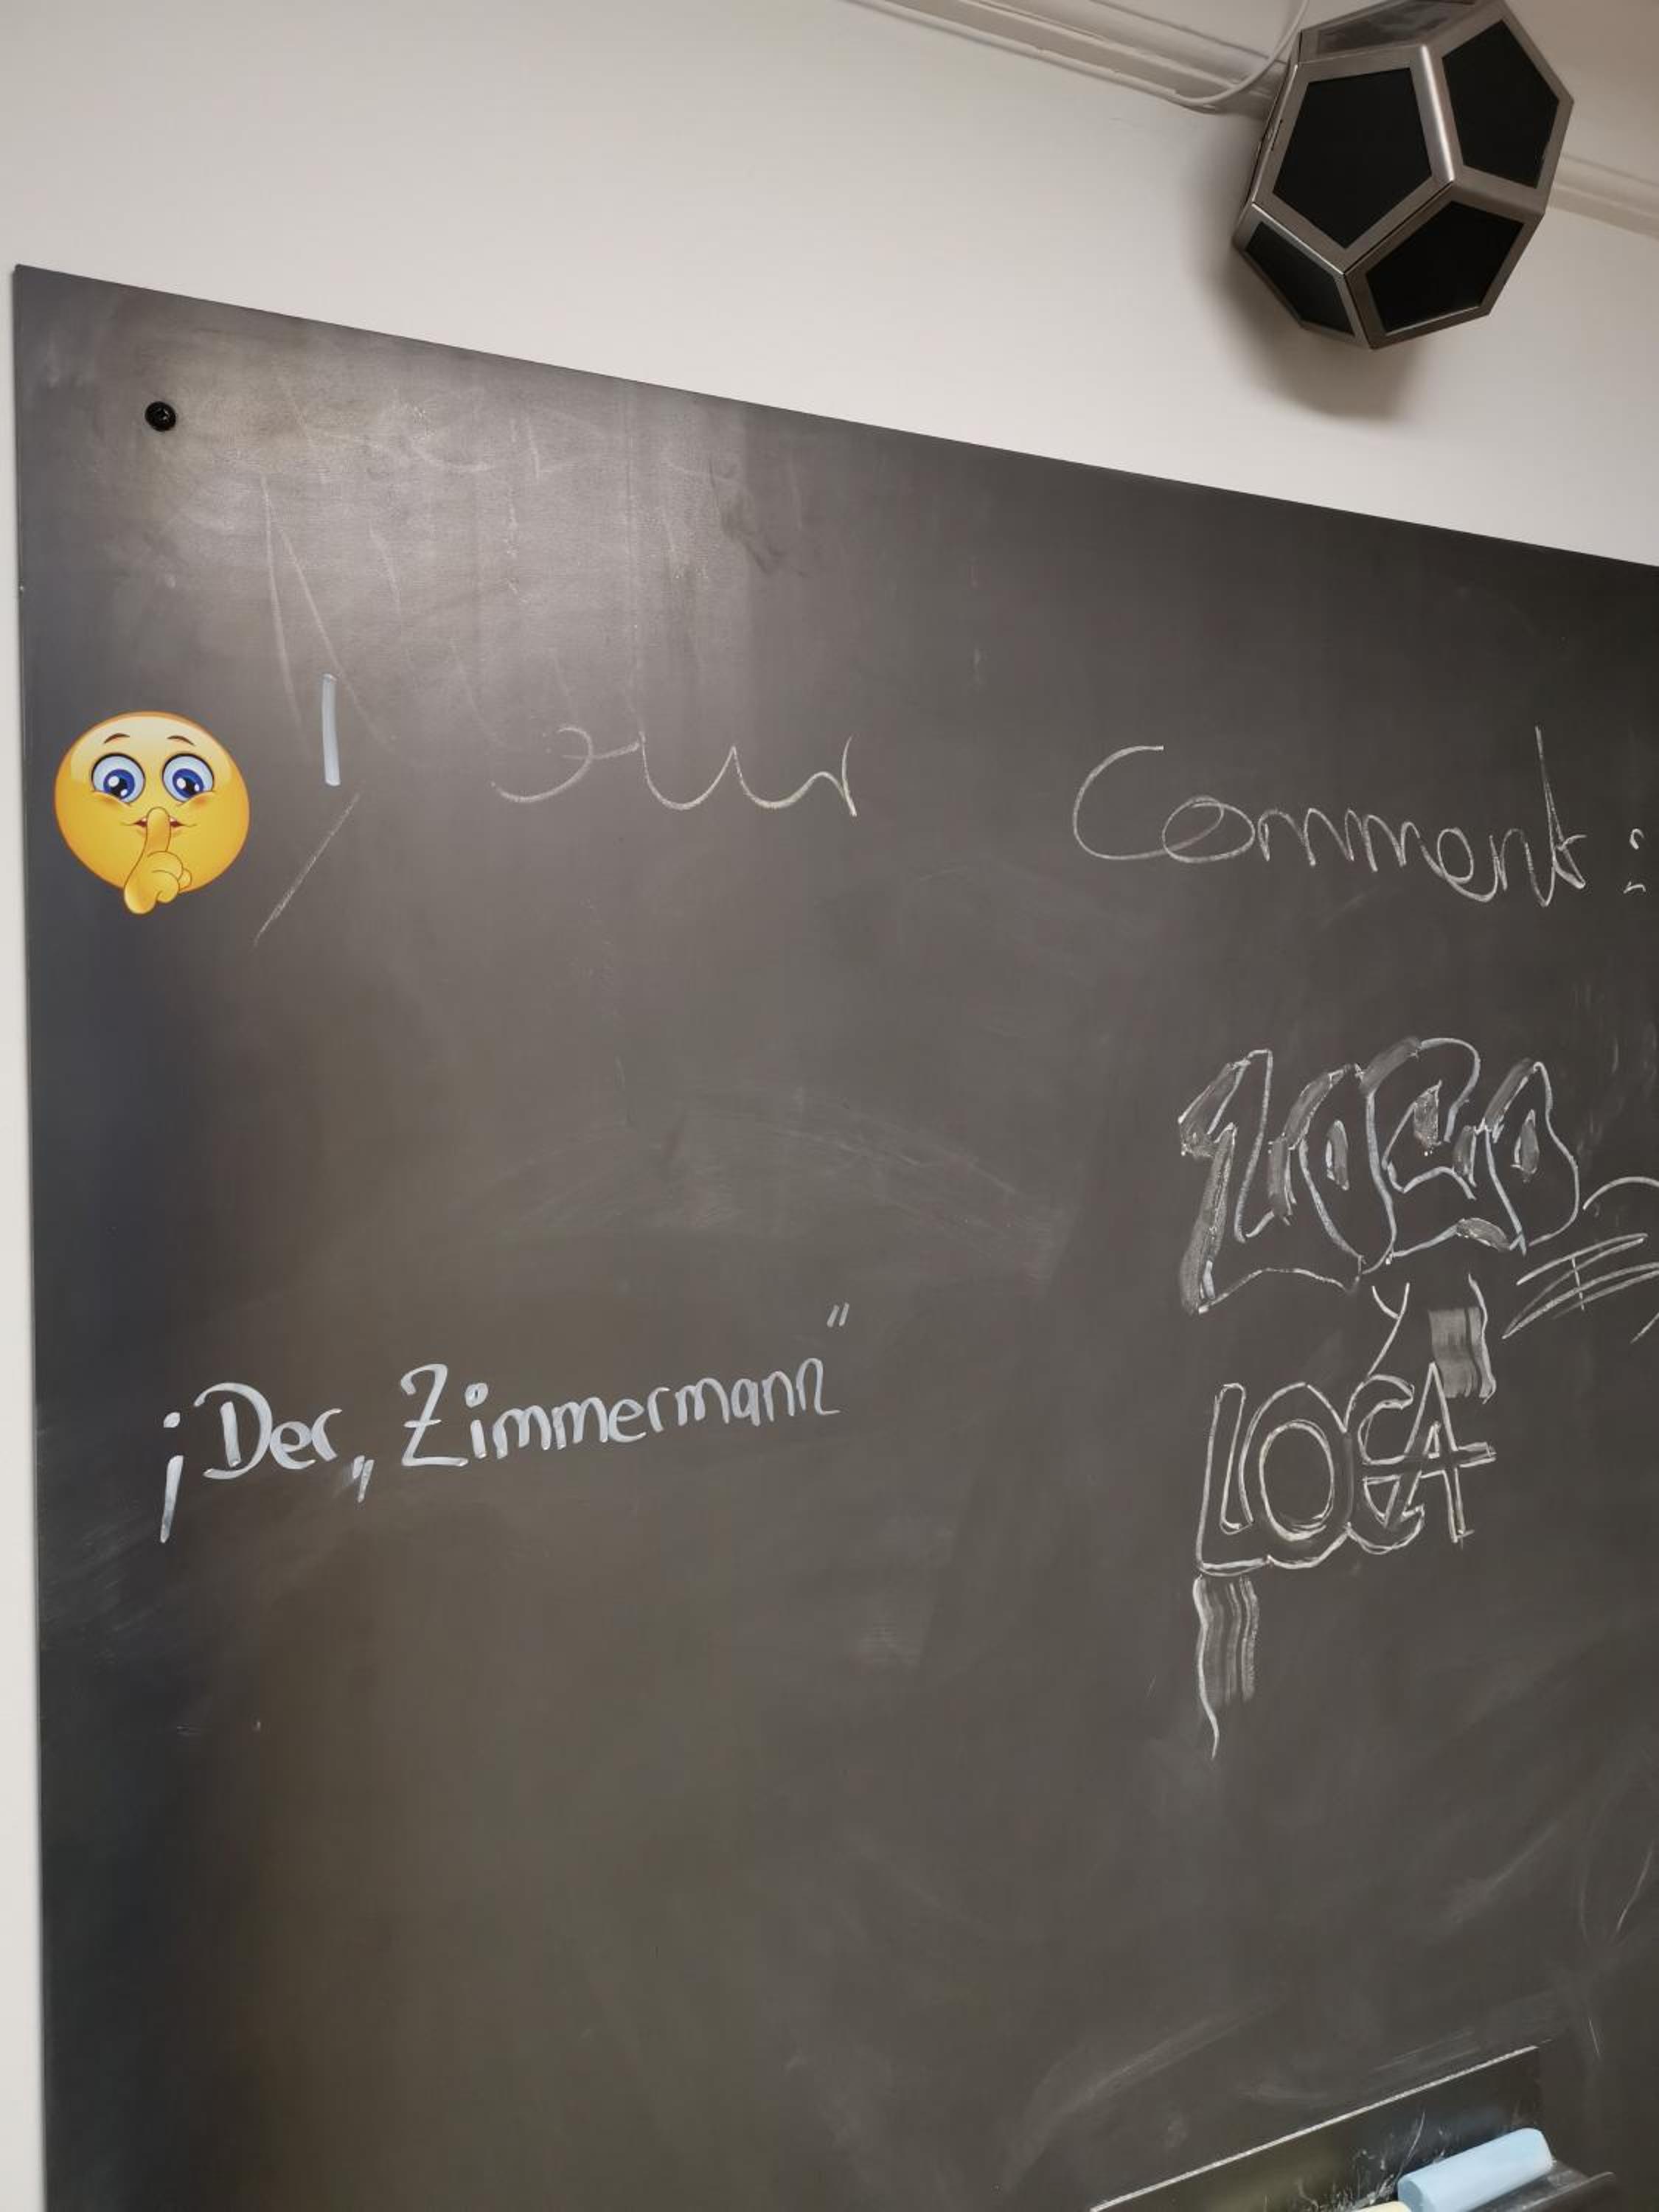 Your Comment:
LOCO
y
LOCA
¡Der „Zimmermann"